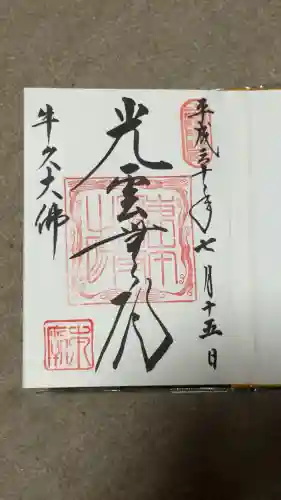 平成三十年七月十五日
光雲無碍
牛久大佛